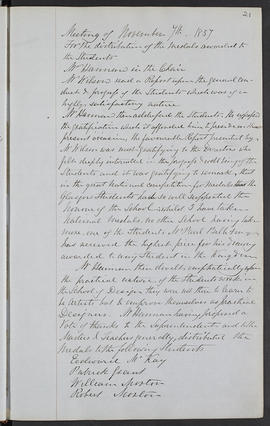 21
Meeting of November 7th 1857
For the distribution of the Medals awarded to
the Students
Mr Hannan in the Chair
Mr Wilson read a Report upon the general con-
duct & progress of the Students which was of a
highly satisfactory nature
Mr Hannan then addressed the Students. He expressed
the gratification which it afforded him to preside on the
present occasion, the favourable Report presented by
Mr Wilson was most gratifying to the Directors who
felt deeply interested in the progress & well being of the
Students and it was gratifying to remark, that
in the great National competition for Medals the
Glasgow Students had so well supported the
honour of the School
National Medals, no other School having taken
more, one of the Students Mr
has received the highest prize for his drawing
awarded to any Student in the Kingdom
Mr Hannan then dwelt emphatically upon
the practical nature of the Students work in
the School of Design they were not there to learn to
be Artists but to improve themselves as practical
Designers. Mr Hannan having proposed a
Vote of thanks to the Superintendents and to the
Masters & Teachers generally, distributed the
Medals to the following Students
McKay
Patrick
William Morton
Robert Morton